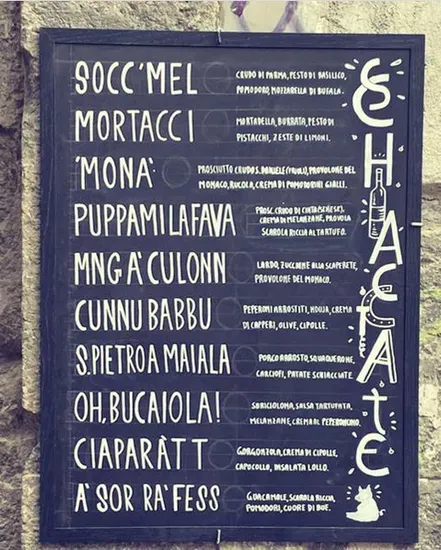 SOCC'MEL
CRUDO DI PARMA, PESTO DI BASILICO,
POMODORO, MOZZARELLA DI BUFALA.
MORTACCI
MORTADELLA, BURRATA, PESTO DI
PISTACCHI, ZESTE DI LIMONI.
'MONA'
PROSCIUTTO CRUDO S. DANIELE (FRIULI), PROVOLONE DEL
MONACO, RUCOLA, CREMA DI POMODORINI GIALLI.
PUPPAMILAFAVA
PROSC. CRUDO DI CINTA SENESE,
CREMA DI MELANZANE, PROVOLA
SCAROLA RICCIA AL TARTUFO.
MNG A' CULONN
LARDO, ZUCCHINE ALLA SCAPERETE,
PROVOLONE DEL MONACO.
CUNNU BABBU
PEPERONI ARROSTITI, NDUJA, CREMA
DI CAPPERI, OLIVE, CIPOLLE.
S. PIETRO A MAIALA
PORCO ARROSTO, SQUAQUERONE,
CARCIOFI, PATATE SCHIACCIATE.
OH, BUCAIOLA!
SBRICIOLONA, SALSA TARTUFATA,
MELANZANE, CREMA AL PEPERONCINO.
CIAPARÀTT
GORGONZOLA, CREMA DI CIPOLLE,
CAPOCOLLO, INSALATA LOLLO.
A' SOR RA' FESS
GUACAMOLE, SCAROLA RICCIA,
POMODORI, CUORE DI BUE.
SCHIACCIATE